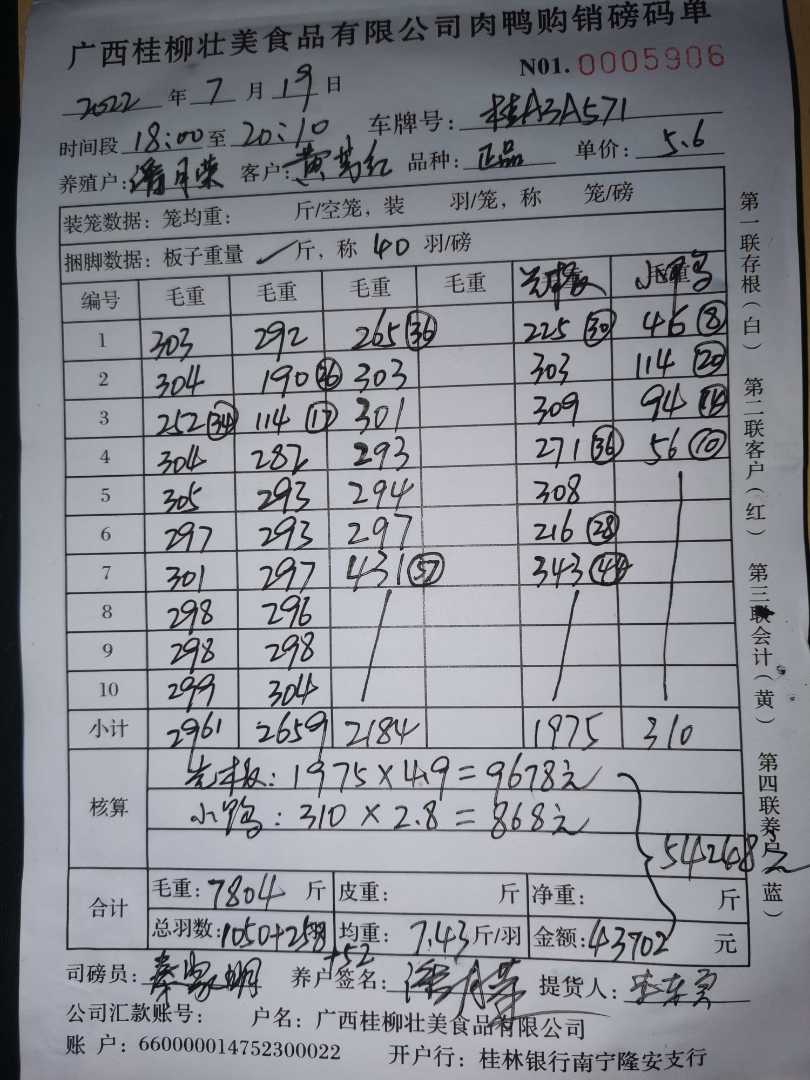 广西桂柳壮美食品有限公司肉鸭购销磅码单
N01. 0005906
2022 年 7 月 19 日
时间段 18:00 至 20:10 车牌号: 桂A3A571
养殖户: 潘月荣 客户: 黄 红 品种: 正品 单价: 5.6
装笼数据: 笼均重: 斤/空笼, 装 羽/笼, 称 笼/磅
捆脚数据: 板子重量 / 斤, 称 40 羽/磅
编号 毛重 毛重 毛重 毛重 光板 小鸭
1 303 292 265 (36) 225 (30) 46 (8)
2 304 190 (26) 303 303 114 (20)
3 252 (34) 114 (17) 301 309 94
4 304 282 293 271 (36) 56 (10)
5 305 293 294 308
6 297 293 297 216 (28)
7 301 297 431 (57) 343 (44)
8 298 296
9 298 298
10 299 304
小计 2961 2659 2184 1975 310
核算 光板: 1975 × 4.9 = 9678元
小鸭: 310 × 2.8 = 868元
54248元
合计 毛重: 7804 斤 皮重: 斤 净重: 斤
总羽数: 1050+258 均重: 7.43 斤/羽 金额: 43702 元
+52
司磅员: 秦家明 养户签名: 潘月荣 提货人:
公司汇款账号: 户名: 广西桂柳壮美食品有限公司
账 户: 660000014752300022 开户行: 桂林银行南宁隆安支行
第一联存根(白) 第二联客户(红) 第三联会计(黄) 第四联养户(蓝)